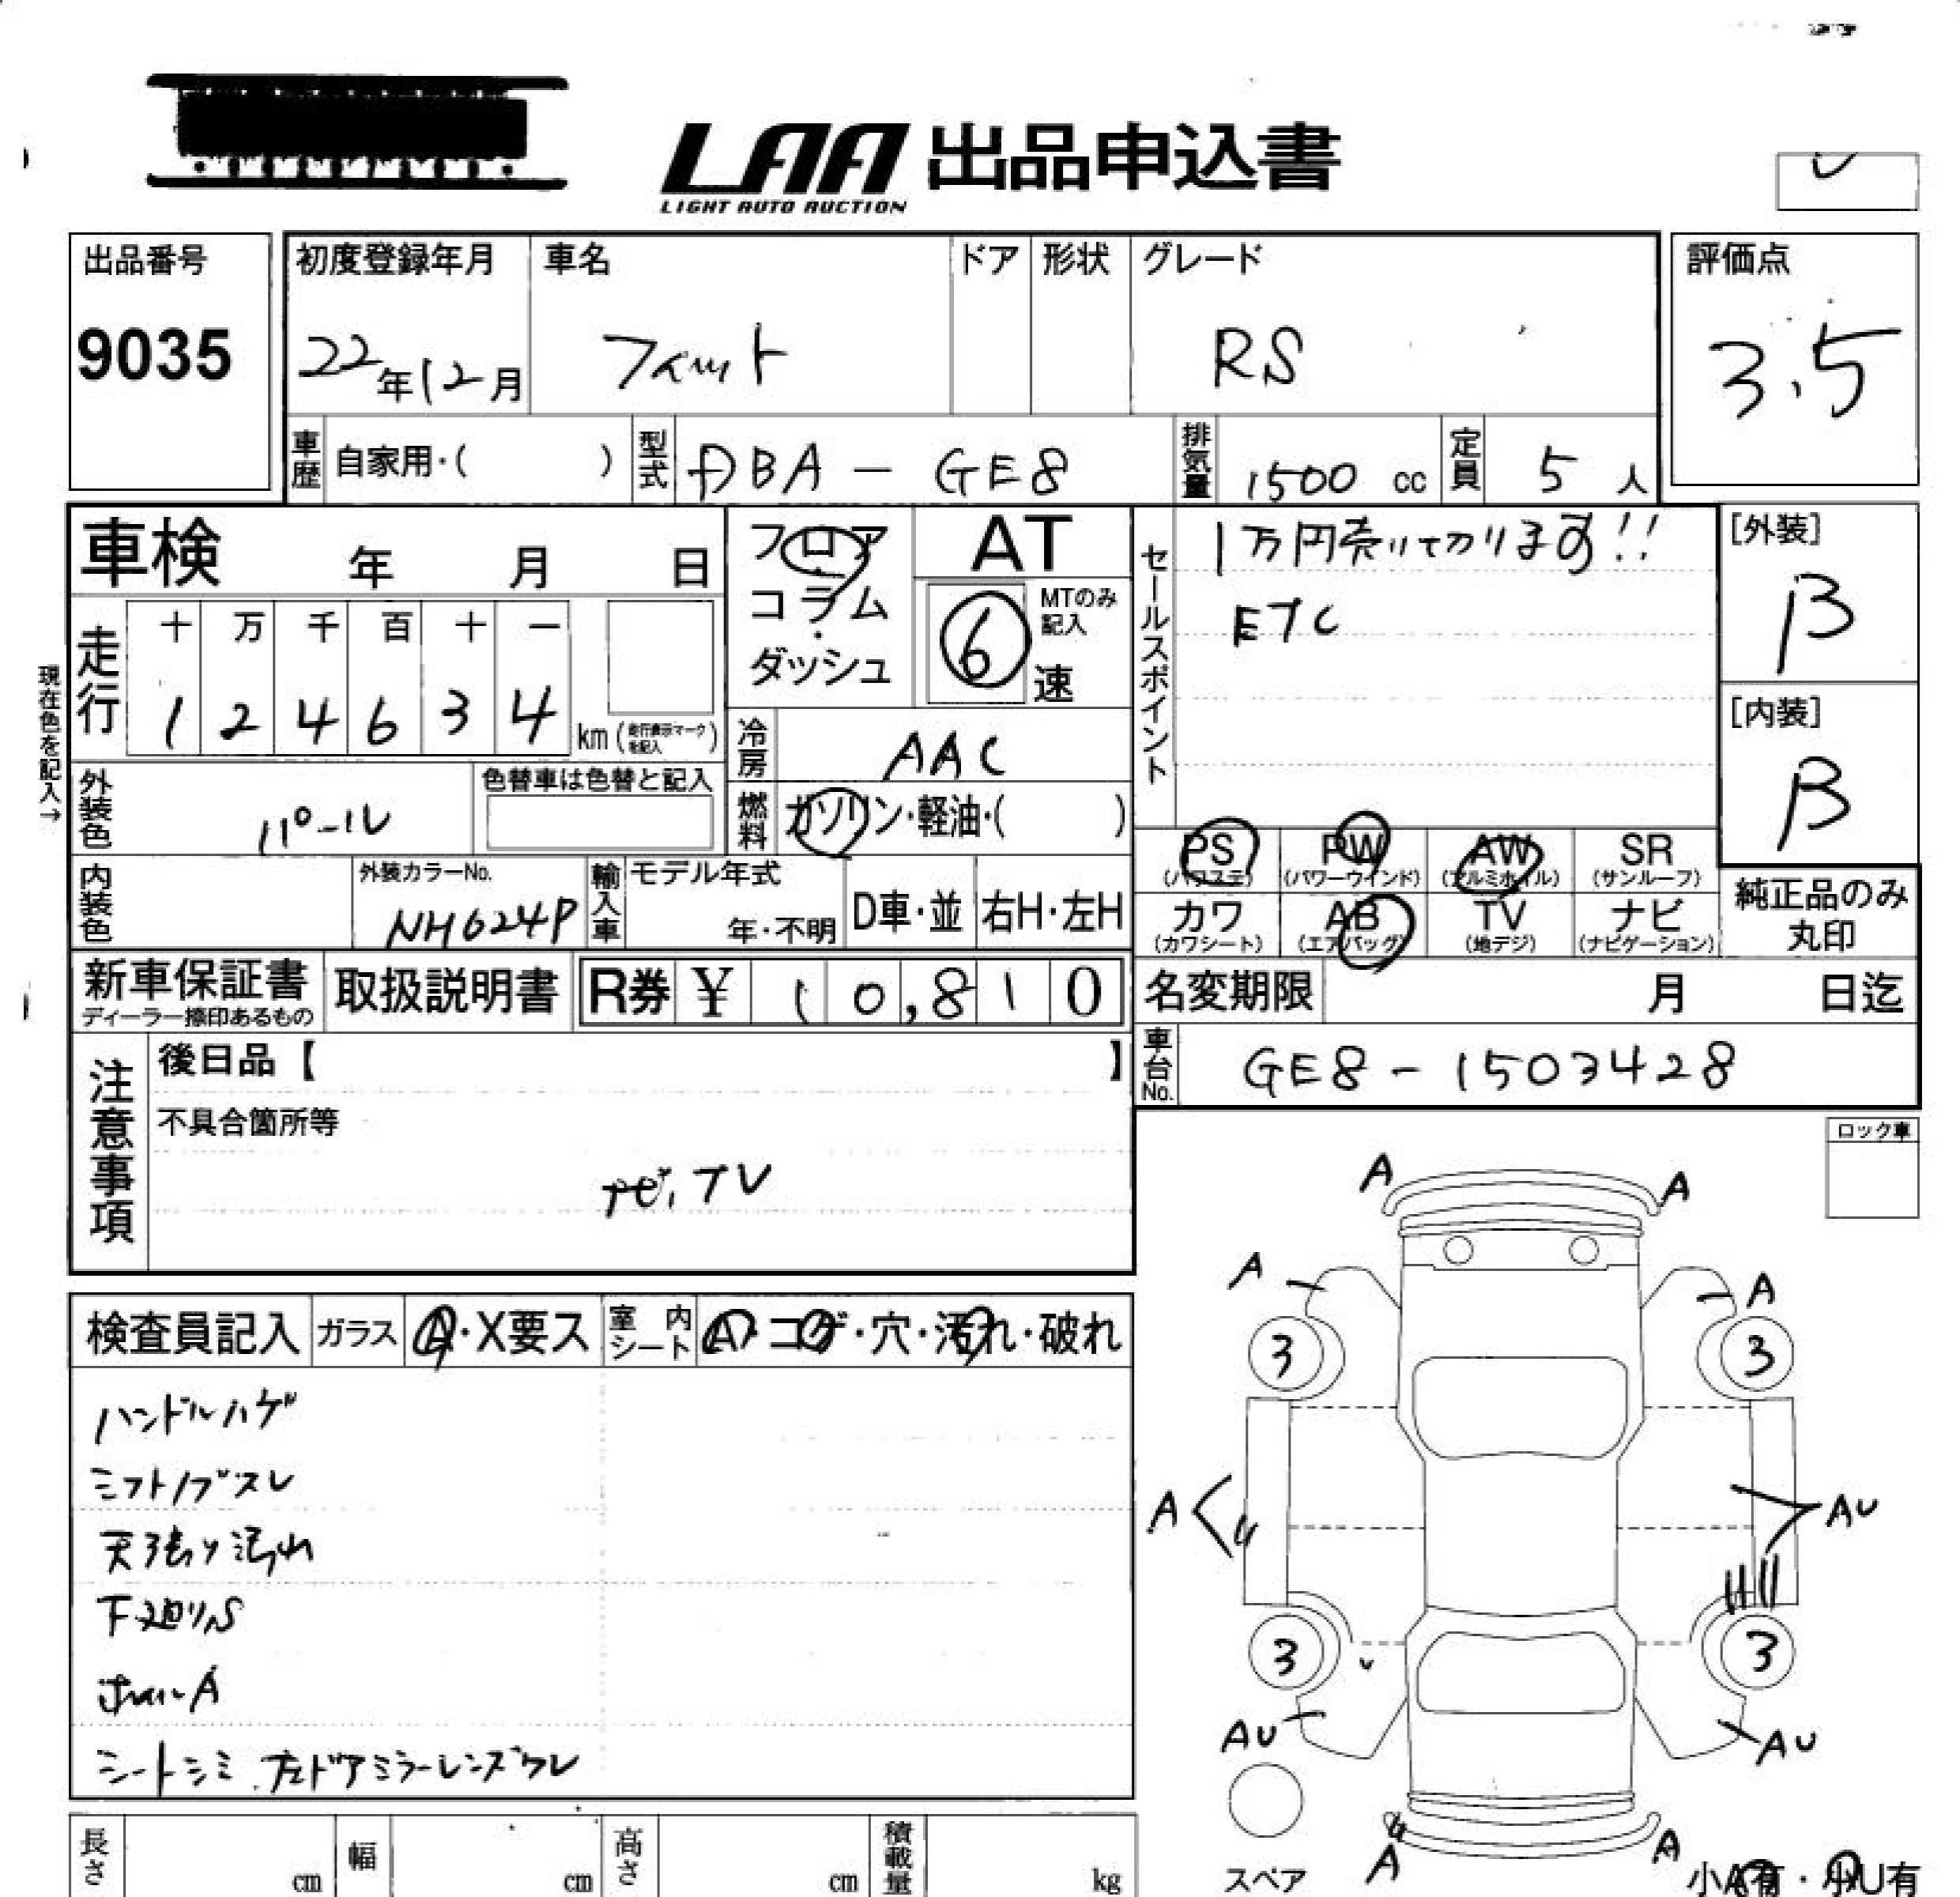 LAA 出品申込書
LIGHT AUTO AUCTION
出品番号
9035
初度登録年月
22年12月
車名
フィット
ドア
形状
グレード
RS
評価点
3.5
車歴 自家用・( )
型式 DBA - GE8
排気量 1500 cc
定員 5 人
車検 年 月 日
フロア
コラム
ダッシュ
AT
6 MTのみ記入
速
セールスポイント
1万円売り切ります!!
ETC
[外装]
B
[内装]
B
現在色を記入→
走行
十 万 千 百 十 一
1 2 4 6 3 4 km (走行表示マークを記入)
冷房 AAC
外装色 パール
色替車は色替と記入
燃料 ガソリン・軽油・( )
PS (パワステ)
PW (パワーウインド)
AW (アルミホイル)
SR (サンルーフ)
カワ (カワシート)
AB (エアバッグ)
TV (地デジ)
ナビ (ナビゲーション)
純正品のみ
丸印
内装色
外装カラーNo.
NH624P
輸入車
モデル年式
年・不明
D車・並
右H・左H
新車保証書
ディーラー捺印あるもの
取扱説明書
R券 ¥ 10,810
名変期限 月 日迄
車台No. GE8-1503428
注意事項
後日品【 】
不具合箇所等
ナビ,TV
ロック車
検査員記入
ガラス A・X要ス
室内シート A・コゲ・穴・汚れ・破れ
ハンドルハゲ
シフトノブスレ
天張り汚れ
下廻りS
ホイールA
シートシミ 左ドアミラーレンズワレ
A A
A A
3 3
A AU
3 3
AU AU
A A
スペア
小A有・小U有
長さ cm
幅 cm
高さ cm
積載量 kg